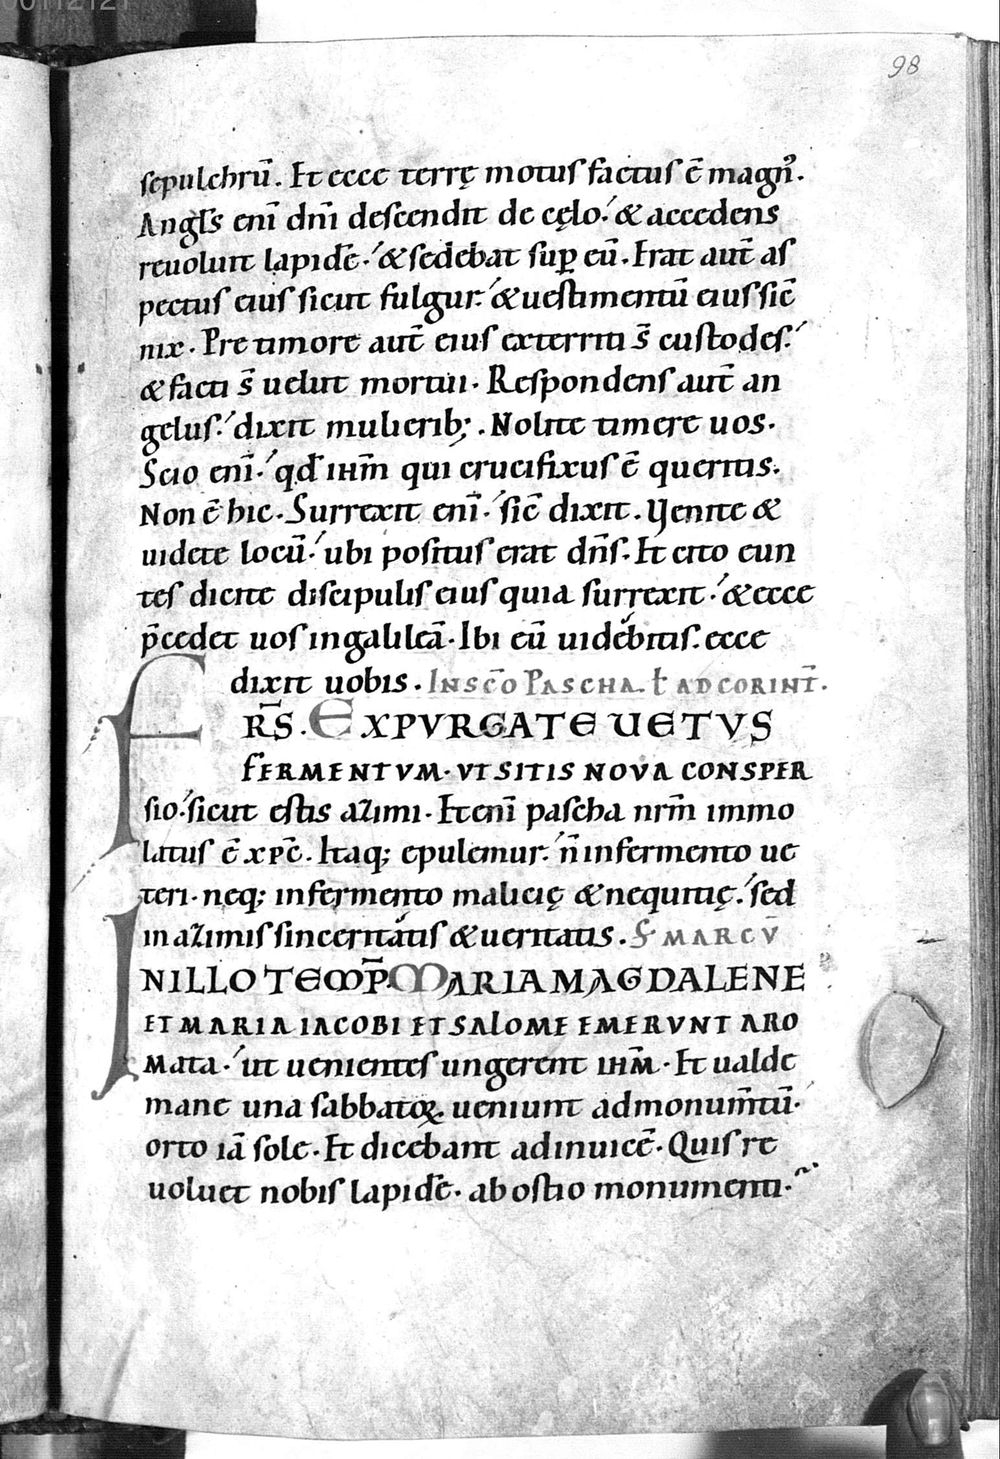 98
sepulchrū. Et ecce terrę motus factus ē magn᷒.
Angl̄s enī dn̄i descendit de cęlo. & accedens
reuoluit lapidē. & sedebat sup̄ eū. Erat aut̄ as
pectus eius sicut fulgur. & uestimentū eius sic̄
nix. Pre timore aut̄ eius exterriti s̄ custodes.
& facti s̄ uelut mortui. Respondens aut̄ an
gelus. dixit mulierib;. Nolite timere uos.
Scio enī. qd̄ ihm̄ qui crucifixus ē queritis.
Non ē hic. Surrexit enī. sic̄ dixit. Uenite &
uidete locū. ubi positus erat dn̄s. Et cito eun
tes dicite discipulis eius quia surrexit. & ecce
p̄cedet uos in galileā. Ibi eū uidébitis. ecce
dixi uobis. IN SC̄O PASCHA. ł AD CORINT̄.
FR̄S. EXPVRGATE UETVS
FERMENTVM. VT SITIS NOVA CONSPER
sio. sicut estis azimi. Etenī pascha nrm̄ immo
latus ē xpc̄. Itaq; epulemur. n̄ in fermento ue
teri. neq; in fermento malicię & nequitię. sed
in azimis sinceritátis & ueritatis. S MARCV̄
IN ILLO TEMP̄. MARIA MAGDALENE
ET MARIA IACOBI ET SALOME EMERVNT ARO
Mata. ut uenientes ungerent ihm̄. Et ualde
mane una sabbatoꝝ. ueniunt ad monum̄tū.
orto iā sole. Et dicebant ad inuicē. Quis re
uoluet nobis lapidē. ab ostio monumenti.